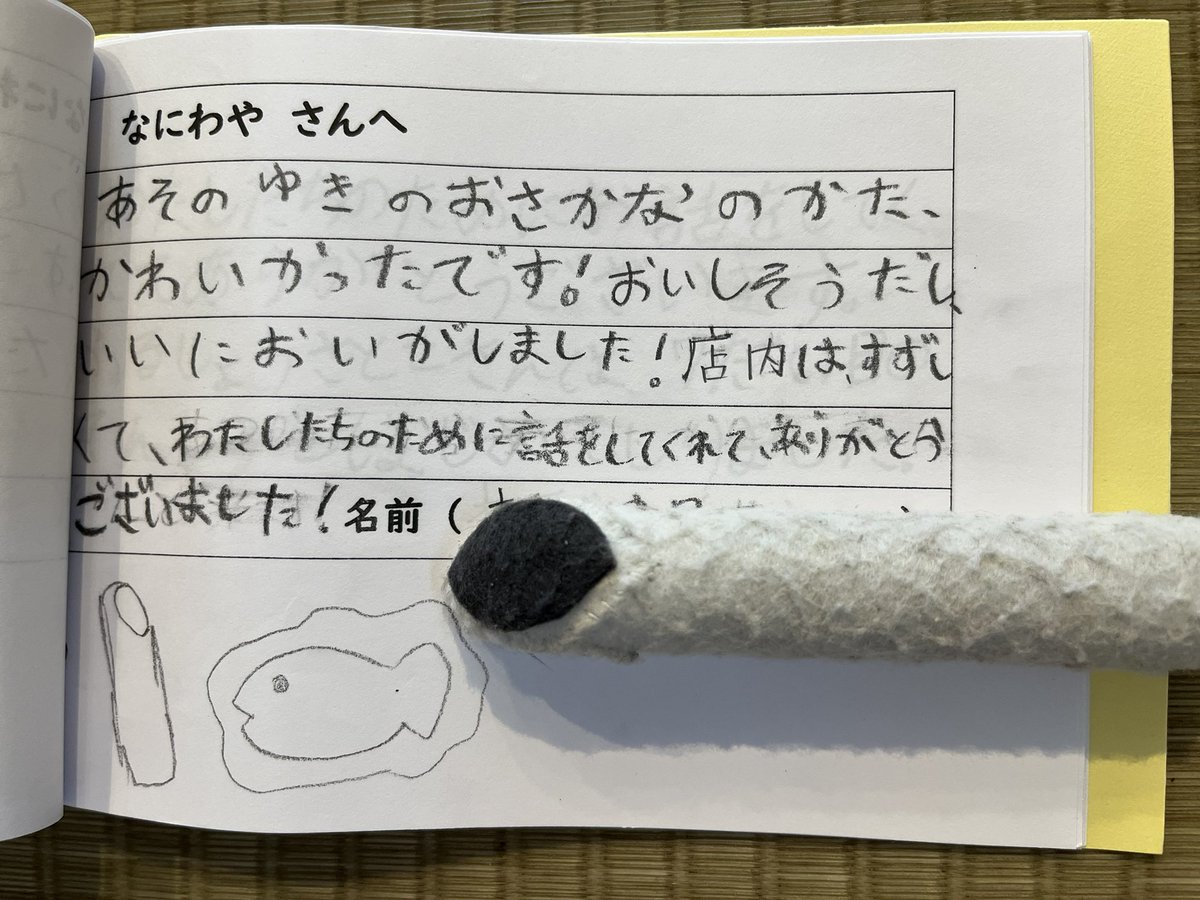 なにわや さんへ
あそのゆきのおさかなのかた、
かわいかったです!おいしそうだし、
いいにおいがしました!店内は、すずし
くて、わたしたちのために話をしてくれて、ありがとう
ございました!名前(